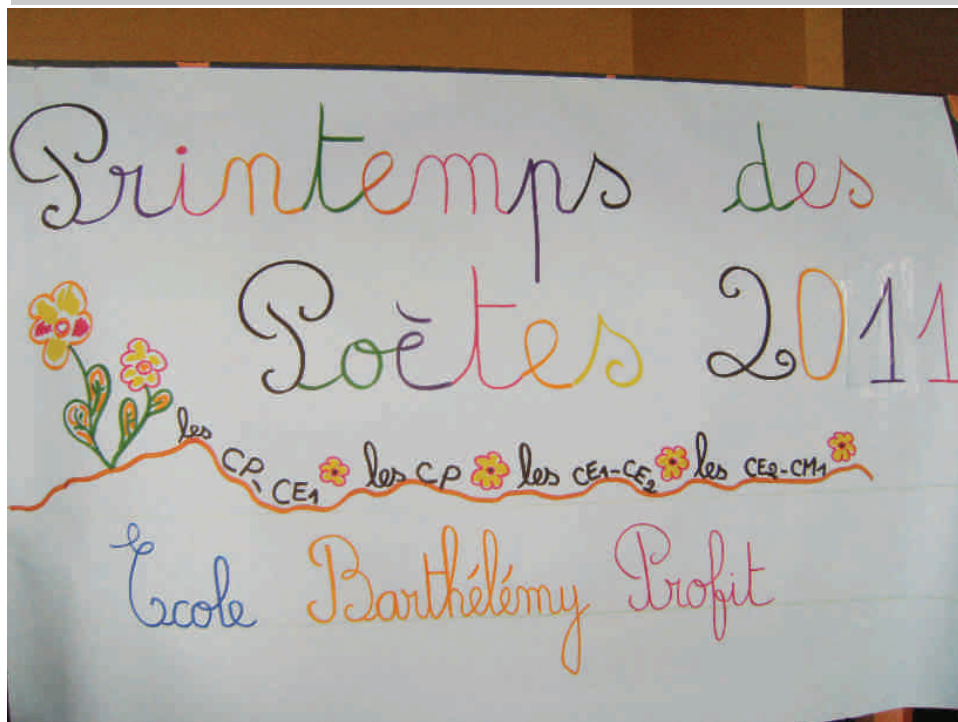 Printemps des
Poètes 2011
les CP-CE1 les CP les CE1-CE2 les CE2-CM1
Ecole Barthélémy Profit